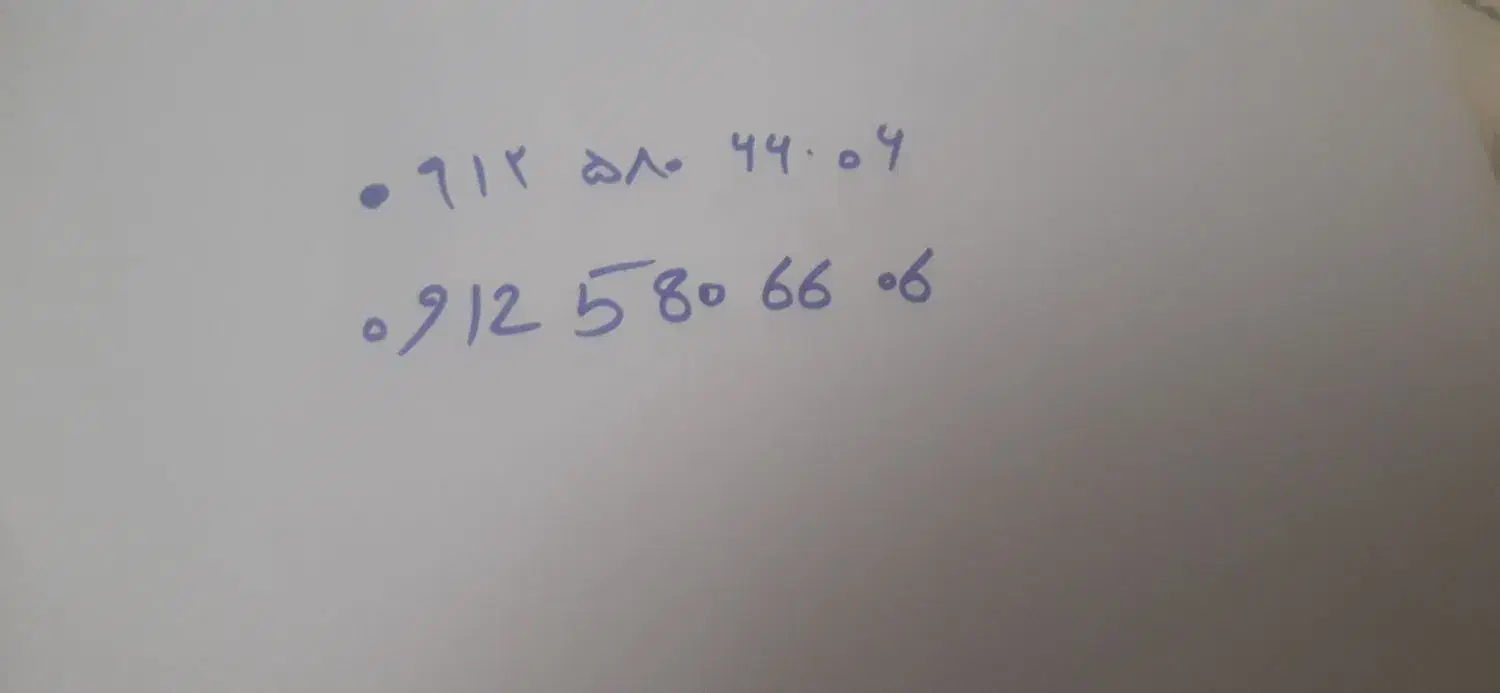 ۰۹۱۲ ۵۸۰ ۶۶ ۰۶
0912 580 66 06